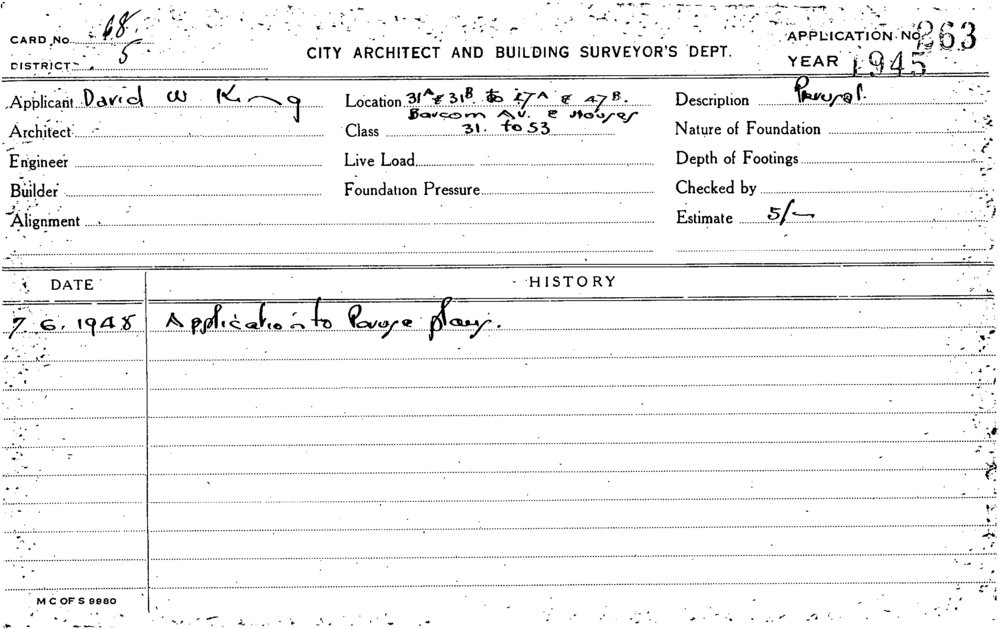 CARD No. 68
DISTRICT 5
CITY ARCHITECT AND BUILDING SURVEYOR'S DEPT.
APPLICATION No. 263
YEAR 1945
Applicant David W King
Location 31A & 31B to 47A & 47B.
Barcom Av. & Houses
Description Perusal.
Architect
Class 31. to 53
Nature of Foundation
Engineer
Live Load
Depth of Footings
Builder
Foundation Pressure
Checked by
Alignment
Estimate 5/-
DATE
HISTORY
7. 6. 1945 Application to Peruse plans.
M C OF S 9980